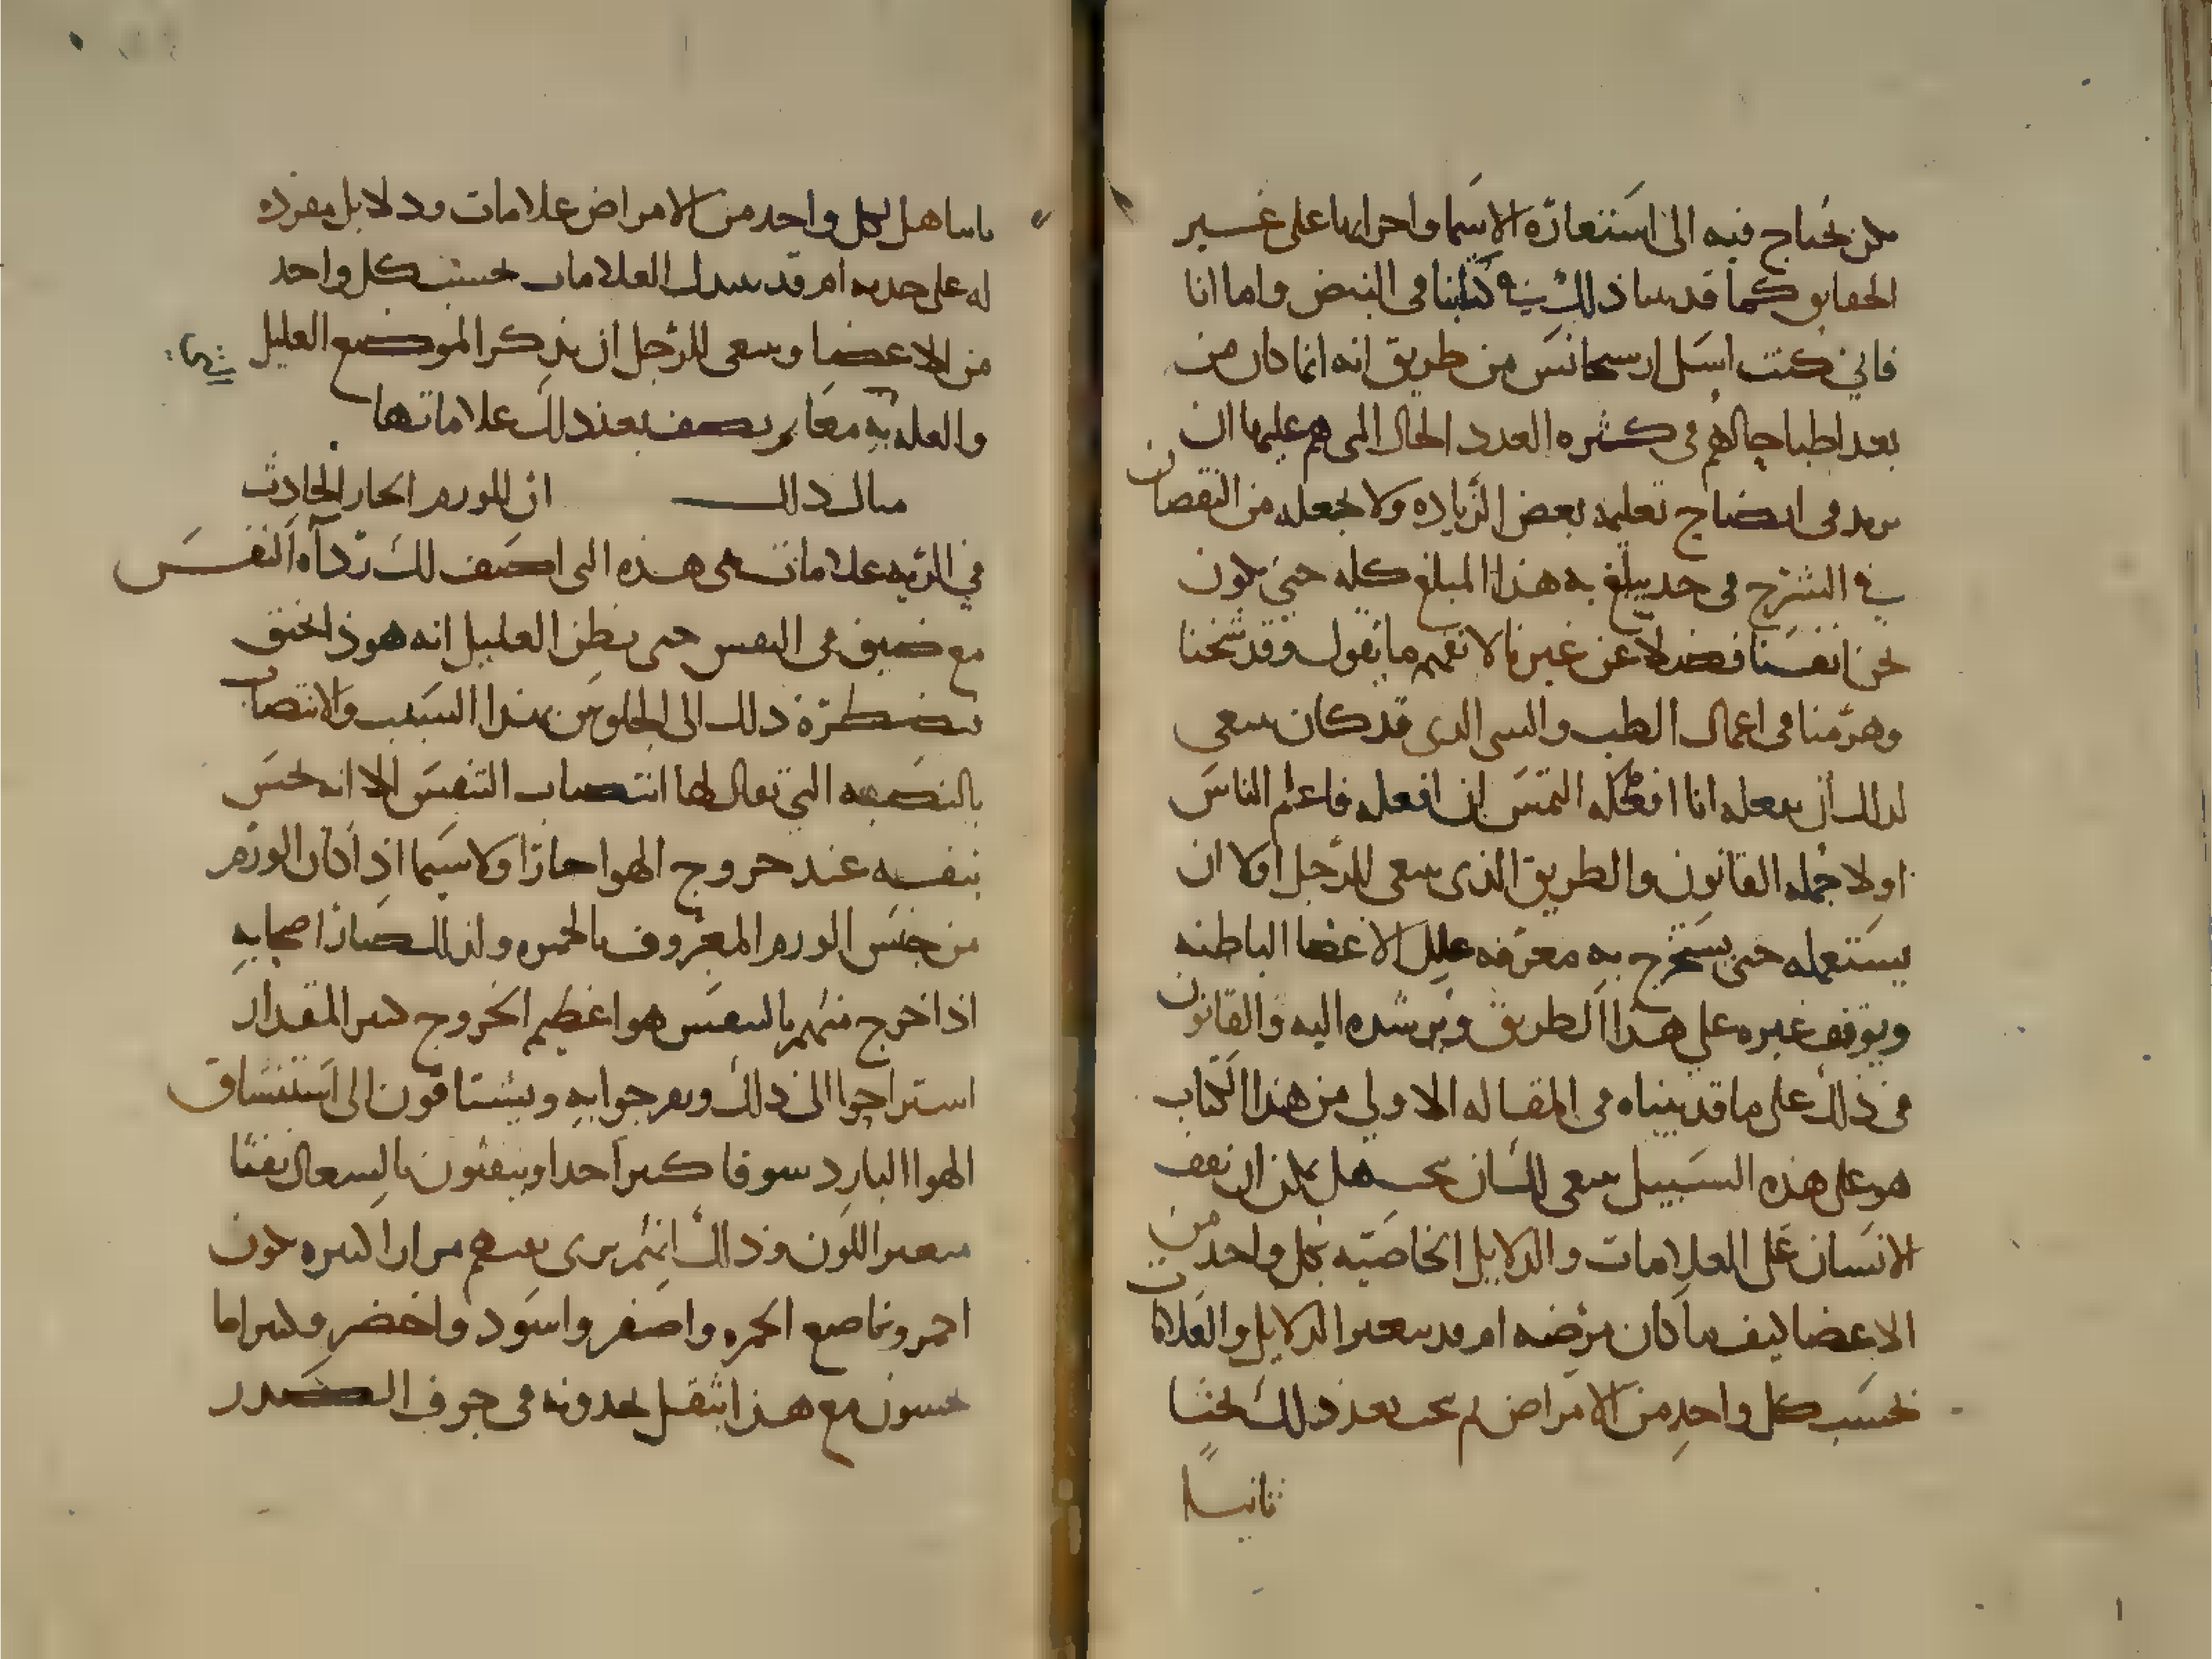 يحتاج فيه الى استعارة الاسما واجرايها على غير
الحقايق كما قد بينا ذلك في كتابنا في النبض واما انا
فاني كنت اسل ارسجانس من طريق انه انما كان من
بعد اطبا حالهم في كثره العدد الحال التي هم عليها ان
يزيد في ايضاح تعليمه بعض الزياده ولا يجعله من النقصان
في الشرح في حد يبلغ به هذا المبلغ كله حتى يكون
نحن انفسنا فضلا عن غيرنا لا نفهم ما يقول وقد شخنا
وهرمنا في اعمال الطب والشي الذي قد كان ينبغي
لذلك ان يفعله انا افعله التمس ان افعله فاعلم الناس
اولا جمله القانون والطريق الذي ينبغي للرجل اولا ان
يستعمله حتى يستخرج به معرفه علل الاعضا الباطنه
ويوقف غيره على هذا الطريق ويرشده اليه والقانون
في ذلك على ما قد بيناه في المقاله الاولى من هذا الكتاب
هو على هذه السبيل ينبغي لك ان تبحث هل يمكن ان نقف
الانسان على العلامات والدلايل الخاصيه بكل واحد من
الاعضا كيف ما كان مرضه ام قد يتغير الدلايل والعلامات
بحسب كل واحد من الامراض ثم تبحث بعد ذلك بحثا
ثانيا
ثانيا هل لكل واحد من الامراض علامات ودلايل مفرده
له على حدته ام قد تتبدل العلامات بحسب كل واحد
من الاعضا وينبغي للرجل ان يذكر الموضع العليل
والعله به معا ثم يصف بعد ذلك علاماتها
مثال ذلك ان للورم الحار الحادث
في الريه علامات هي هذه التي اصف لك رداه النفس
مع ضيق في النفس حتى يظن العليل انه هوذا يختنق
يضطره ذلك الى الجلوس من هذا السبب والانتصاب
بالنصبه التي يقال لها انتصاب التنفس الا انه يحس
بنفسه عند خروج الهوا حارا ولا سيما اذا كان الورم
من جنس الورم المعروف بالحمره ولذلك صار اصحابه
اذا خرج منهم بالنفس هوا عظيم الخروج كثير المقدار
استراحوا الى ذلك وتفرجوا به ويشتاقون الى استنشاق
الهوا البارد شوقا كثيرا جدا وينفثون بالسعال نفثا
متغير اللون وذلك انهم يرى نفثهم مرارا كثيره يكون
احمر وناصع الحمره واصفر واسود واخضر وكثيرا ما
يحسون مع هذا بثقل يجدونه في جوف الصدر